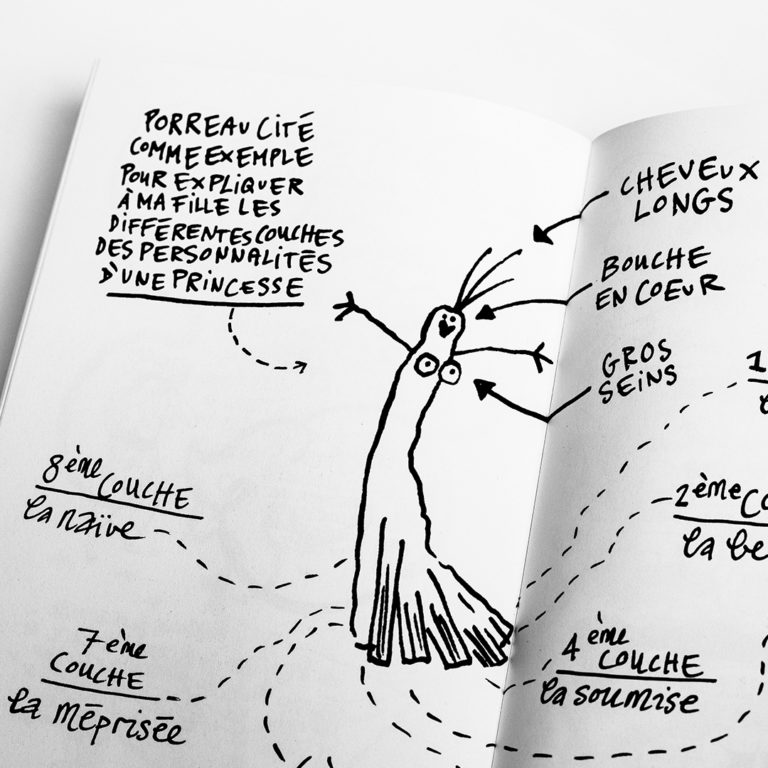 PORREAU CITÉ
COMME EXEMPLE
POUR EXPLIQUER
À MA FILLE LES
DIFFÉRENTES COUCHES
DES PERSONNALITÉS
D'UNE PRINCESSE
CHEVEUX
LONGS
BOUCHE
EN COEUR
GROS
SEINS
8ème COUCHE
la naïve
7ème
COUCHE
la méprisée
1
2ème CO
la be
4ème COUCHE
la soumise